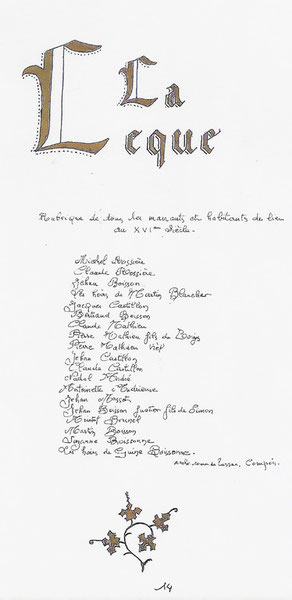 La
Leque
Rubrique de tous les manants et habitants du lieu
au XVIème siècle.
Michel Rossière
Claude Rossière
Jehan Boisson
Les hoirs de Martin Blancher
Jacques Castillon
Bertrand Boisson
Claude Mathieu
Pierre Mathieu fils de
Pierre Mathieu vieil
Jehan Castillon
Claude Castillon
André
Antoinette
Jehan Masson
Jehan Boisson fils de Simon
Brunel
Martin Boisson
Suzanne Boissonne
Les hoirs de Boissonne.
de Lussan, Compoix.
14